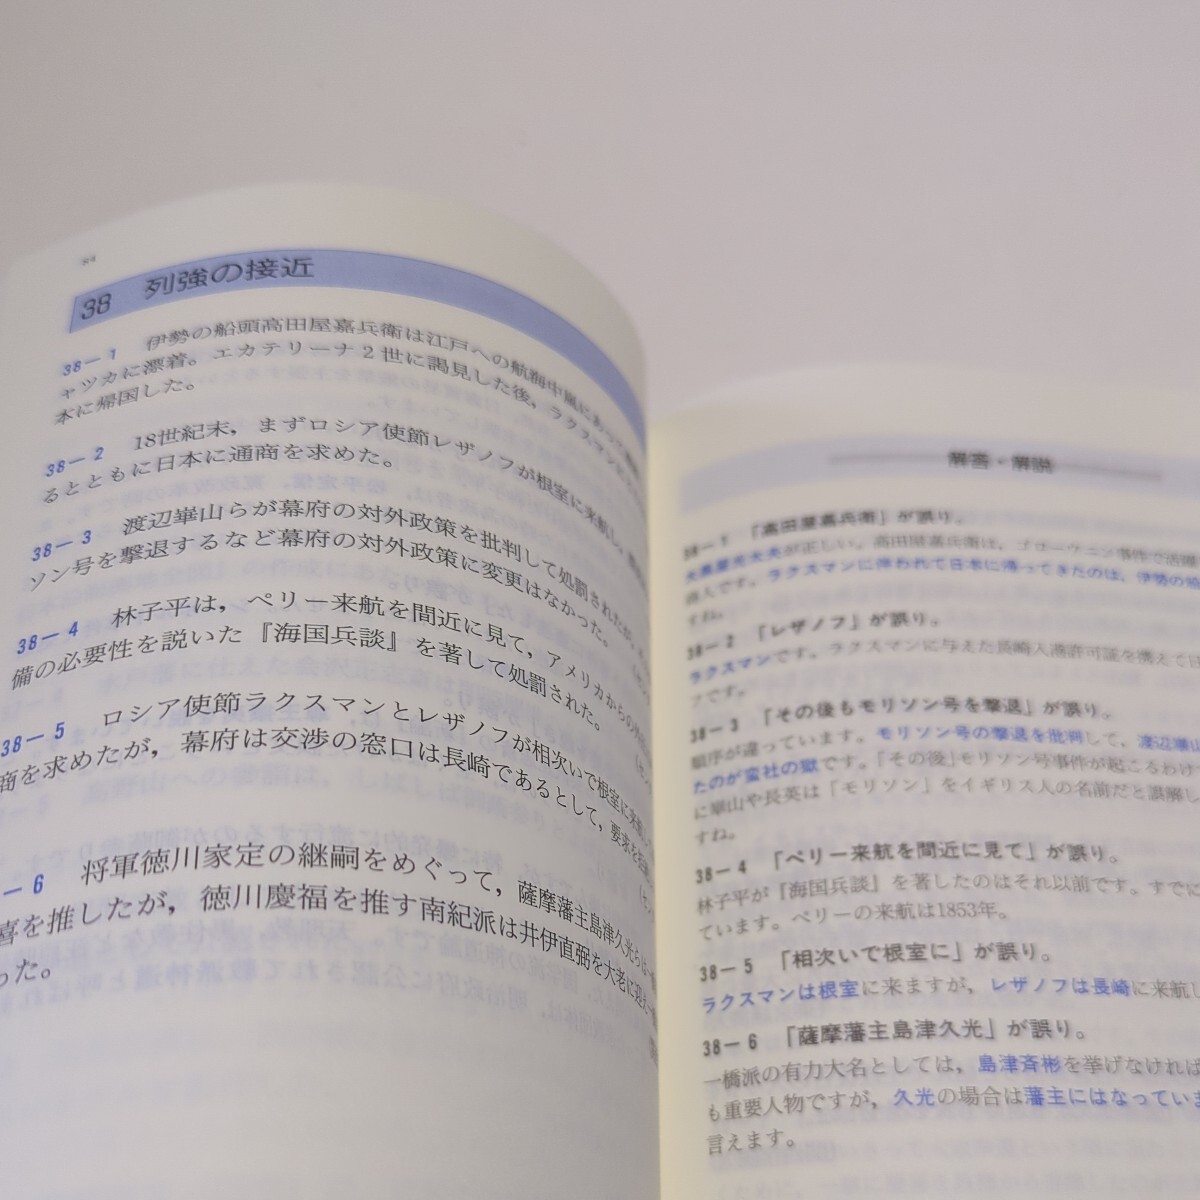 38 列強の接近
38－1 伊勢の船頭高田屋嘉兵衛は江戸への航海中嵐にあって
ャツカに漂着。エカテリーナ2世に謁見した後，ラクスマン
本に帰国した。
38－2 18世紀末，まずロシア使節レザノフが根室に来航し，
るとともに日本に通商を求めた。
38－3 渡辺崋山らが幕府の対外政策を批判して処罰されたが，
ソン号を撃退するなど幕府の対外政策に変更はなかった。
38－4 林子平は，ペリー来航を間近に見て，アメリカからの
備の必要性を説いた『海国兵談』を著して処罰された。
38－5 ロシア使節ラクスマンとレザノフが相次いで根室に来航し
商を求めたが，幕府は交渉の窓口は長崎であるとして，要求を拒
－6 将軍徳川家定の継嗣をめぐって，薩摩藩主島津久光らは一橋
喜を推したが，徳川慶福を推す南紀派は井伊直弼を大老に迎え
った。
解答・解説
38－1 「高田屋嘉兵衛」が誤り。
大黒屋光太夫が正しい。高田屋嘉兵衛は，ゴローウニン事件で活躍
商人です。ラクスマンに伴われて日本に帰ってきたのは，伊勢の船
すね。
38－2 「レザノフ」が誤り。
ラクスマンです。ラクスマンに与えた長崎入港許可証を携えて
フです。
38－3 「その後もモリソン号を撃退」が誤り。
順序が違っています。モリソン号の撃退を批判して，渡辺崋山
たのが蛮社の獄です。「その後」モリソン号事件が起こるわけ
に崋山や長英は「モリソン」をイギリス人の名前だと誤解し
すね。
38－4 「ペリー来航を間近に見て」が誤り。
林子平が『海国兵談』を著したのはそれ以前です。すでに
ています。ペリーの来航は1853年。
38－5 「相次いで根室に」が誤り。
ラクスマンは根室に来ますが，レザノフは長崎に来航し
38－6 「薩摩藩主島津久光」が誤り。
一橋派の有力大名としては，島津斉彬を挙げなければ
も重要人物ですが，久光の場合は藩主にはなっていま
言えます。